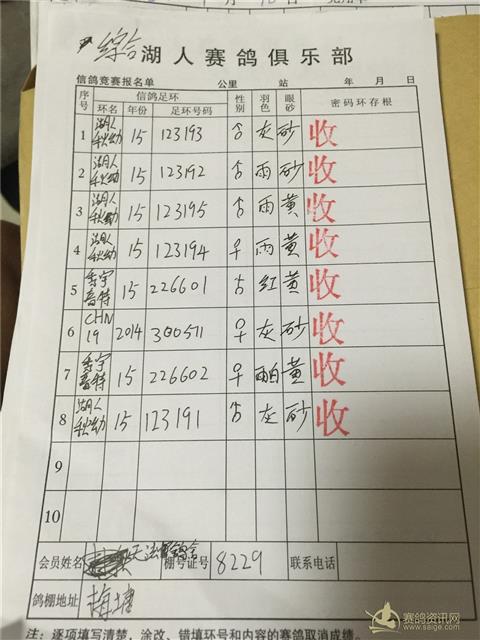 综合 湖人赛鸽俱乐部
信鸽竞赛报名单 公里 站 年 月 日
序号 信鸽足环 性别 羽色 眼砂 密码环存根
环名 年份 足环号码
1 湖人秋幼 15 123193 灰 砂 收
2 湖人秋幼 15 123192 雨 砂 收
3 湖人秋幼 15 123195 雨 黄 收
4 湖人秋幼 15 123194 ♀ 雨 黄 收
5 15 226601 红 黄 收
6 CHN 19 2014 300511 ♀ 灰 砂 收
7 15 226602 ♀ 黄 收
8 湖人秋幼 15 123191 灰 砂 收
9
10
会员姓名 棚号证号 8229 联系电话
鸽棚地址 梅塘
注：逐项填写清楚，涂改、错填环号和内容的赛鸽取消成绩。
赛鸽资讯网
www.saige.com